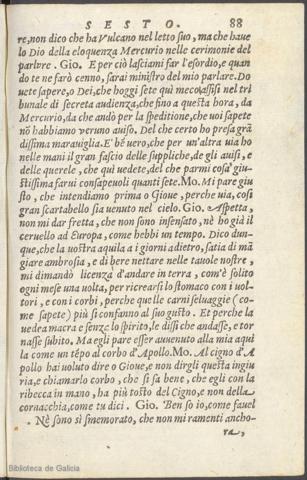 SESTO. 88
re, non dico che ha Vulcano nel letto suo, ma che haue
lo Dio della eloquenza Mercurio nelle cerimonie del
parlare. Gio. E per ciò lasciami far l'esordio, e quan
do te ne farò cenno, sarai ministro del mio parlare. Do
uete sapere, o Dei, che hoggi sete quì meco assisi nel tri
bunale di secreta audienza, che fino a questa hora, da
Mercurio, da che andò per la speditione, che uoi sapete
nõ habbiamo veruno auiso. Del che certo ho presa grã
dissima marauiglia. E' bẽ uero, che per un'altra uia ho
nelle mani il gran fascio delle suppliche, de gli auisi, e
delle querele, che quì vedete, del che parmi cosa giu-
stissima farui consapeuoli quanti sete. Mo. Mi pare giu
sto, che intendiamo prima o Gioue, perche uia, cosi
gran scartabello sia uenuto nel cielo. Gio. Aspetta,
non mi dar fretta, che non sono insensato, nè ho già il
ceruello ad Europa, come hebbi un tempo. Dico dun-
que, che la nostra aquila a i giorni adietro, satia di mã
giare ambrosia, e di bere nettare nelle tauole nostre,
mi dimandò licenza d'andare in terra, com'è solito
ogni mese una uolta, per ricrearsi lo stomaco con i uol-
tori, e con i corbi, perche quelle carni seluaggie (co-
me sapete) più si confanno al suo gusto. Et perche la
uedea macra e senza lo spirito, le dissi che andasse, e tor
nasse subito. Ma egli pare esser auuenuto alla mia aqui
la come un tẽpo al corbo d'Apollo. Mo. Al cigno d'A
pollo hai uoluto dire o Gioue, e non dirgli questa ingiu
ria, e chiamarlo corbo, che si sa bene, che egli con la
ribecca in mano, ha più tosto del Cigno, e non della
cornacchia, come tu dici. Gio. Ben so io, come fauel
. Nè sono sì smemorato, che non mi ramenti ancho-
ra,
Biblioteca de Galicia